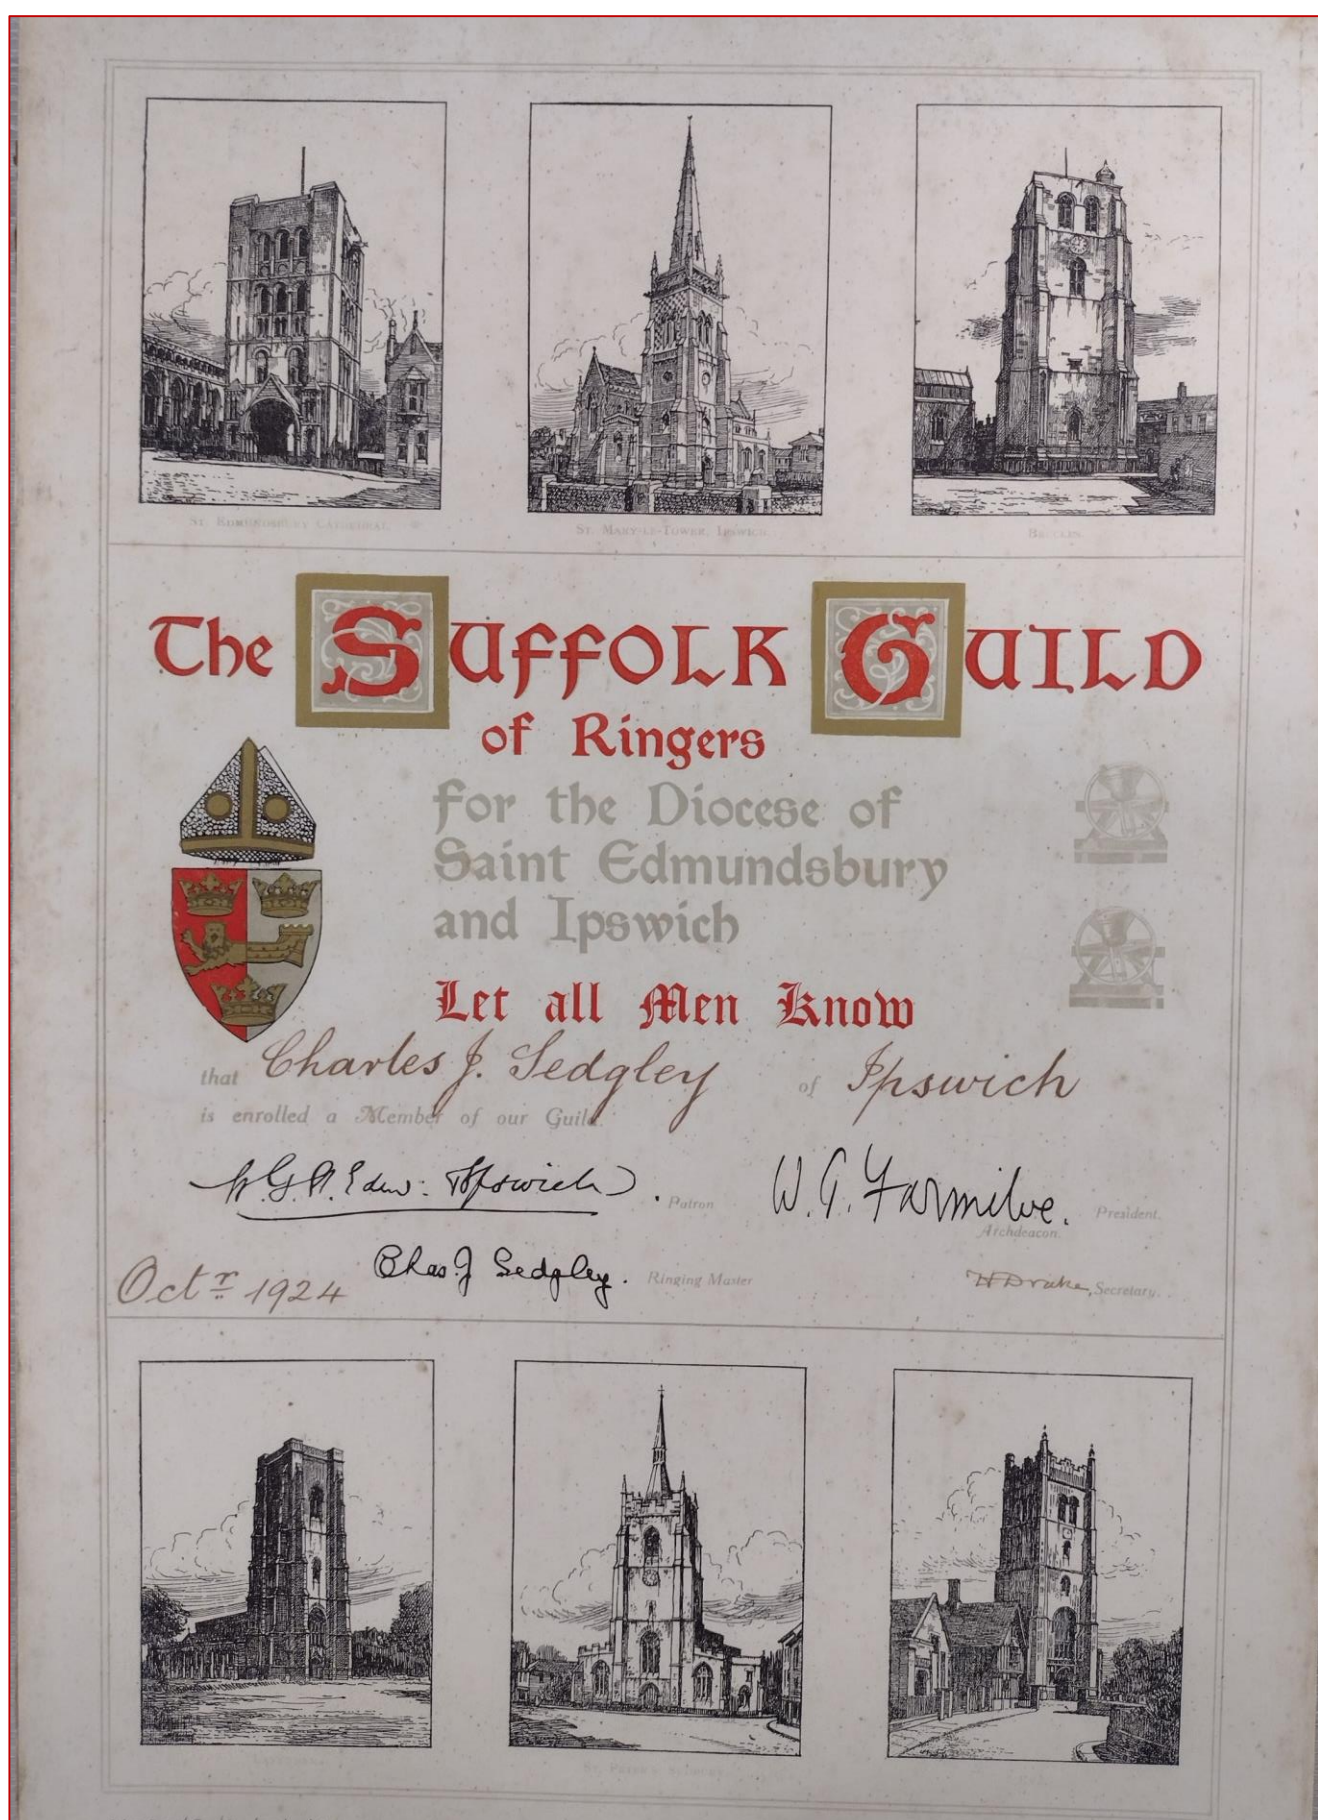 St. Edmundsbury Cathedral.
St. Mary-le-Tower, Ipswich.
Beccles.
The Suffolk Guild
of Ringers
for the Diocese of
Saint Edmundsbury
and Ipswich
Let all Men Know
that Charles J. Sedgley of Ipswich
is enrolled a Member of our Guild.
W.G. St. Edm: & Ipswich. Patron W. G. Farmiloe. President.
Archdeacon.
Octr 1924 Chas J Sedgley. Ringing Master H Drake, Secretary.
St. Peter's, Sudbury.